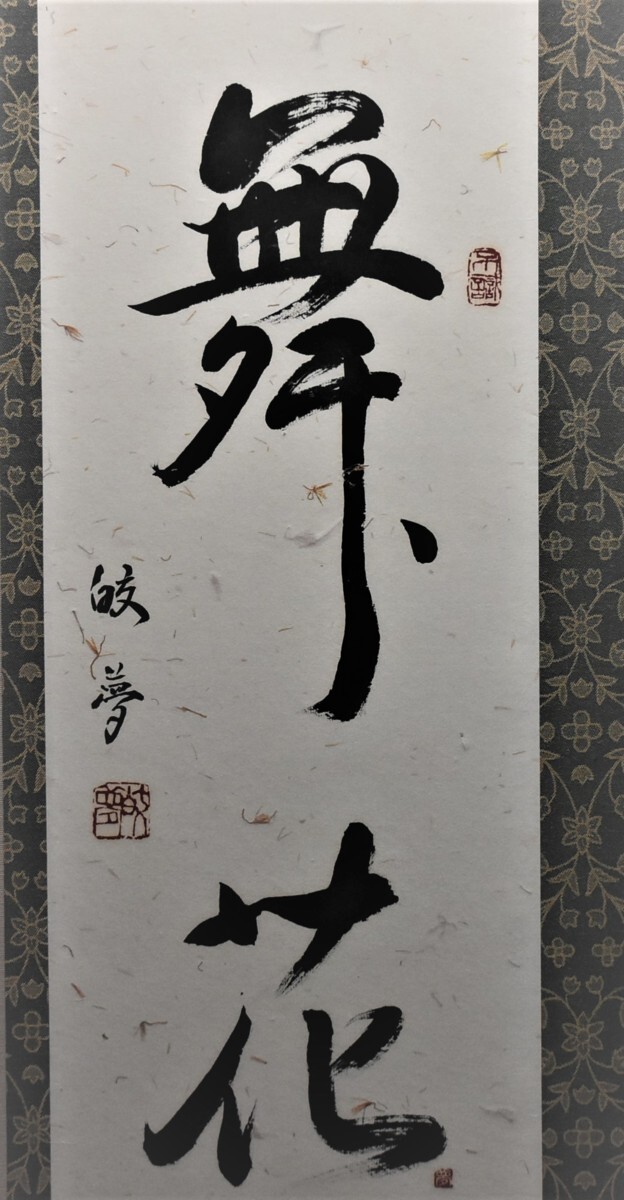 舞花
皎夢